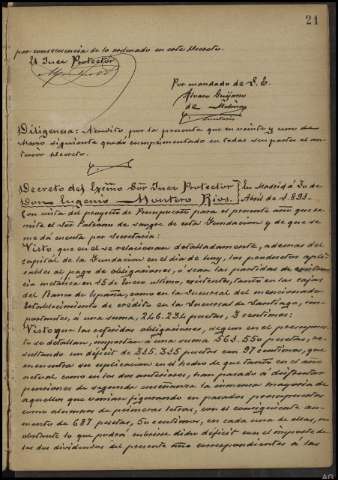 21
por consecuencia de lo ordenado en este Decreto.
El Juez Protector
Por mandado de S. E.
Alvaro Quijano
de
Diligencia: Acredito por la presente que en veinte y uno de
Marzo siguiente quedó cumplimentado en todas sus partes el an-
terior decreto.
Decreto del Exmo Sor Juez Protector } En Madrid á 30 de
Don Eugenio Montero Rios. } Abril de 1.893.
En vista del proyecto de Presupuesto para el presente año que re-
mite el Sor Patrono de sangre de esta Fundación y de que se
me dá cuenta por Secretaría:
Visto que en él se relacionan detalladamente, ademas del
capital de la Fundación en el dia de hoy, los productos apli-
cables al pago de obligaciones, ó sean las partidas de existencia
en metálico en 15 de Enero último, existentes, tanto en las cajas
del Banco de España, como en la Sucursal del mencionado
Establecimiento de crédito en la Sucursal de Santiago, im-
portantes, á una suma, 246.234 pesetas, 3 centimos:
Visto que las referidas obligaciones, segun en el presupues-
to se detallan, importan á una suma 563.550 pesetas, re-
sultando un déficit de 315.335 pesetas con 97 centimos, que
encuentra su esplicacion en el hecho de que tanto en el año
actual como en los dos anteriores, han pasado á disfrutar
pensiones de segunda enseñanza la inmensa mayoria de
aquellos que venian figurando en pasados presupuestos
como alumnos de primeras letras, con el consiguiente au-
mento de 687 pesetas, 50 centimos, en cada uno de ellos, no
obstante lo que podrá cubrirse dicho déficit con el importe de
los dos dividendos del presente año correspondientes á las